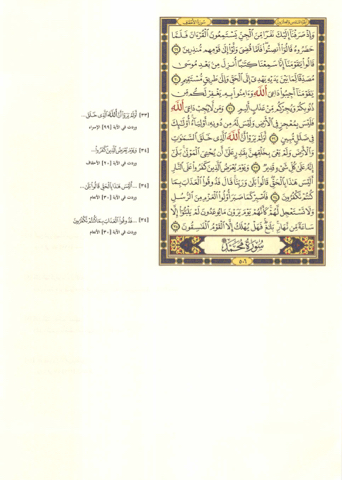 وَإِذْ صَرَفْنَآ إِلَيْكَ نَفَرًا مِّنَ الْجِنِّ يَسْتَمِعُونَ الْقُرْءَانَ فَلَمَّا
حَضَرُوهُ قَالُوٓا أَنصِتُوا فَلَمَّا قُضِىَ وَلَّوْا إِلَىٰ قَوْمِهِم مُّنذِرِينَ ٢٩
قَالُوا يَٰقَوْمَنَآ إِنَّا سَمِعْنَا كِتَٰبًا أُنزِلَ مِنۢ بَعْدِ مُوسَىٰ
مُصَدِّقًا لِّمَا بَيْنَ يَدَيْهِ يَهْدِىٓ إِلَى الْحَقِّ وَإِلَىٰ طَرِيقٍ مُّسْتَقِيمٍ ٣٠
يَٰقَوْمَنَآ أَجِيبُوا دَاعِىَ اللَّهِ وَءَامِنُوا بِهِۦ يَغْفِرْ لَكُم مِّن
ذُنُوبِكُمْ وَيُجِرْكُم مِّنْ عَذَابٍ أَلِيمٍ ٣١ وَمَن لَّا يُجِبْ دَاعِىَ اللَّهِ
فَلَيْسَ بِمُعْجِزٍ فِى الْأَرْضِ وَلَيْسَ لَهُۥ مِن دُونِهِۦٓ أَوْلِيَآءُ أُولَٰٓئِكَ
فِى ضَلَٰلٍ مُّبِينٍ ٣٢ أَوَلَمْ يَرَوْا أَنَّ اللَّهَ الَّذِى خَلَقَ السَّمَٰوَٰتِ
وَالْأَرْضَ وَلَمْ يَعْىَ بِخَلْقِهِنَّ بِقَٰدِرٍ عَلَىٰٓ أَن يُحْـِۧىَ الْمَوْتَىٰ بَلَىٰٓ
إِنَّهُۥ عَلَىٰ كُلِّ شَىْءٍ قَدِيرٌ ٣٣ وَيَوْمَ يُعْرَضُ الَّذِينَ كَفَرُوا عَلَى النَّارِ
أَلَيْسَ هَٰذَا بِالْحَقِّ قَالُوا بَلَىٰ وَرَبِّنَا قَالَ فَذُوقُوا الْعَذَابَ بِمَا
كُنتُمْ تَكْفُرُونَ ٣٤ فَاصْبِرْ كَمَا صَبَرَ أُولُوا الْعَزْمِ مِنَ الرُّسُلِ
وَلَا تَسْتَعْجِل لَّهُمْ كَأَنَّهُمْ يَوْمَ يَرَوْنَ مَا يُوعَدُونَ لَمْ يَلْبَثُوٓا إِلَّا
سَاعَةً مِّن نَّهَارٍ بَلَٰغٌ فَهَلْ يُهْلَكُ إِلَّا الْقَوْمُ الْفَٰسِقُونَ ٣٥
سُورَةُ مُحَمَّدٍ
٥٠٦
[٣٣] أَوَلَمْ يَرَوْا أَنَّ اللَّهَ الَّذِى خَلَقَ...
وردت في الآية [٩٩] الإسراء
[٣٤] وَيَوْمَ يُعْرَضُ الَّذِينَ كَفَرُوا...
وردت في الآية [٢٠] الأحقاف
[٣٤] ...أَلَيْسَ هَٰذَا بِالْحَقِّ قَالُوا بَلَىٰ...
وردت في الآية [٣٠] الأنعام
[٣٤] ...فَذُوقُوا الْعَذَابَ بِمَا كُنتُمْ تَكْفُرُونَ
وردت في الآية [٣٠] الأنعام